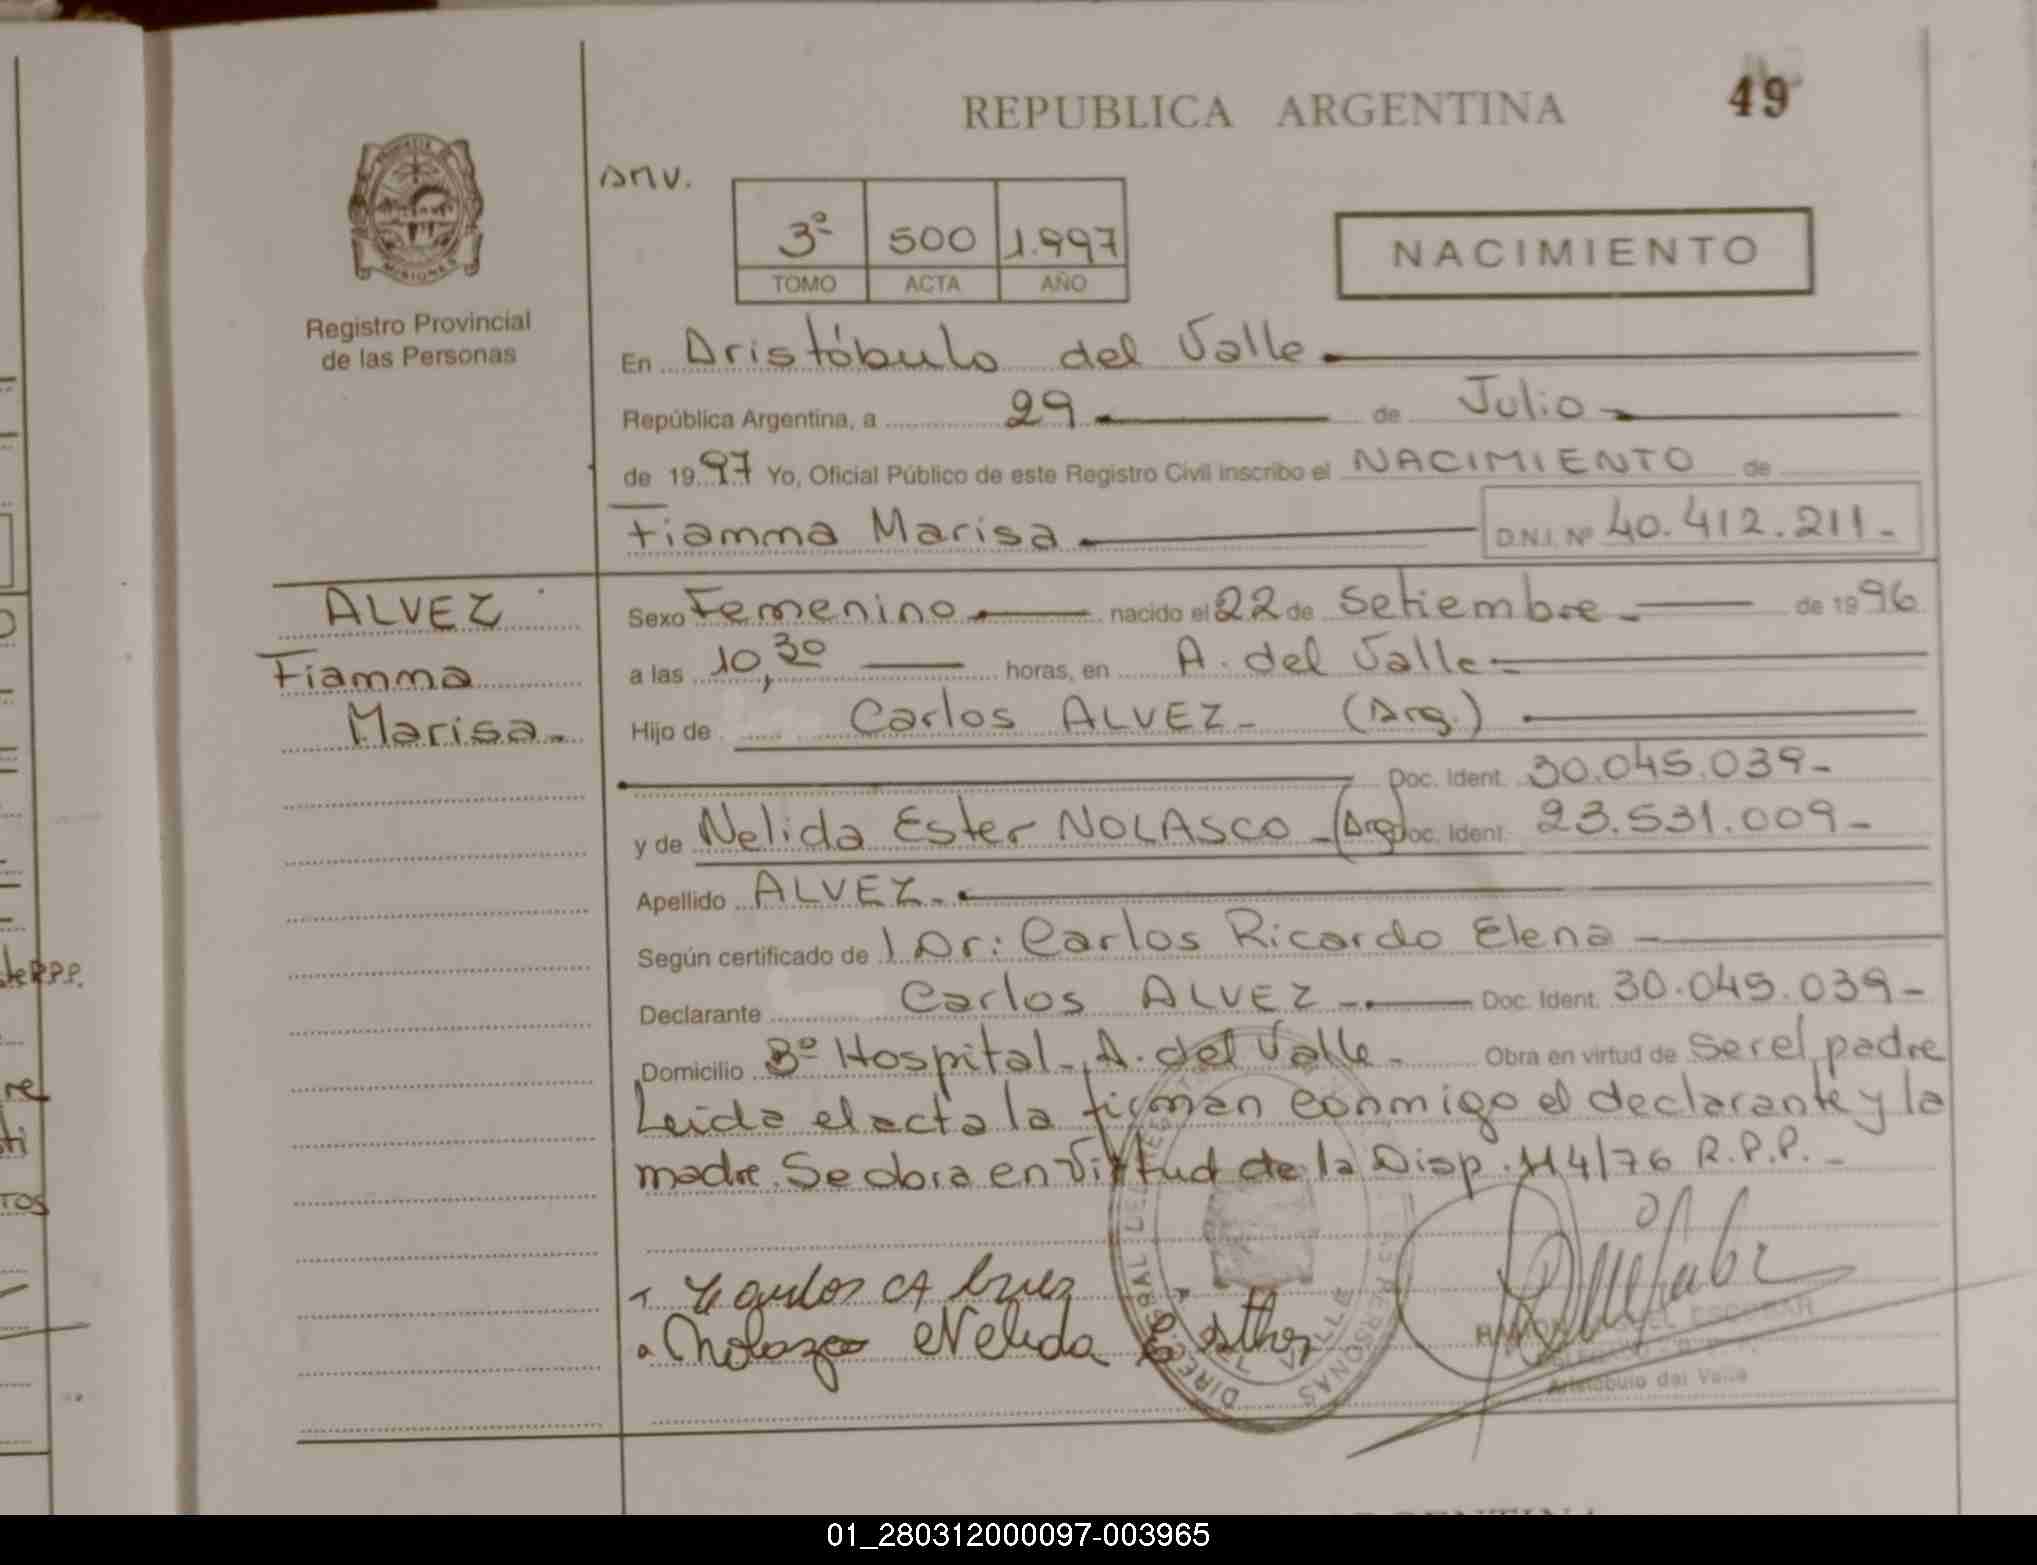 REPUBLICA ARGENTINA
49
PROVINCIA DE
MISIONES
Registro Provincial
de las Personas
AMV.
3º 500 1.997
TOMO ACTA AÑO
NACIMIENTO
En Aristóbulo del Valle
República Argentina, a 29 de Julio
de 1997 Yo, Oficial Público de este Registro Civil inscribo el NACIMIENTO de
Fiamma Marisa D.N.I. Nº 40.412.211-
ALVEZ
Fiamma
Marisa.-
Sexo Femenino nacido el 22 de Setiembre de 1996
a las 10,30 horas, en A. del Valle
Hijo de Carlos ALVEZ- (Arg.)
Doc. Ident. 30.045.039-
y de Nelida Ester NOLASCO -(Arg) Doc. Ident. 23.531.009-
Apellido ALVEZ.-
Según certificado de l Dr: Carlos Ricardo Elena
Declarante Carlos ALVEZ - Doc. Ident. 30.045.039-
Domicilio Bº Hospital- A. del Valle- Obra en virtud de ser el padre
Leida el acta la firman conmigo el declarante y la
madre. Se obra en virtud de la Disp. 114/76 R.P.P.-
Nelida
ESCOBAR
Aristóbulo del Valle
te R.P.P.
re
ti
TOS
01_280312000097-003965